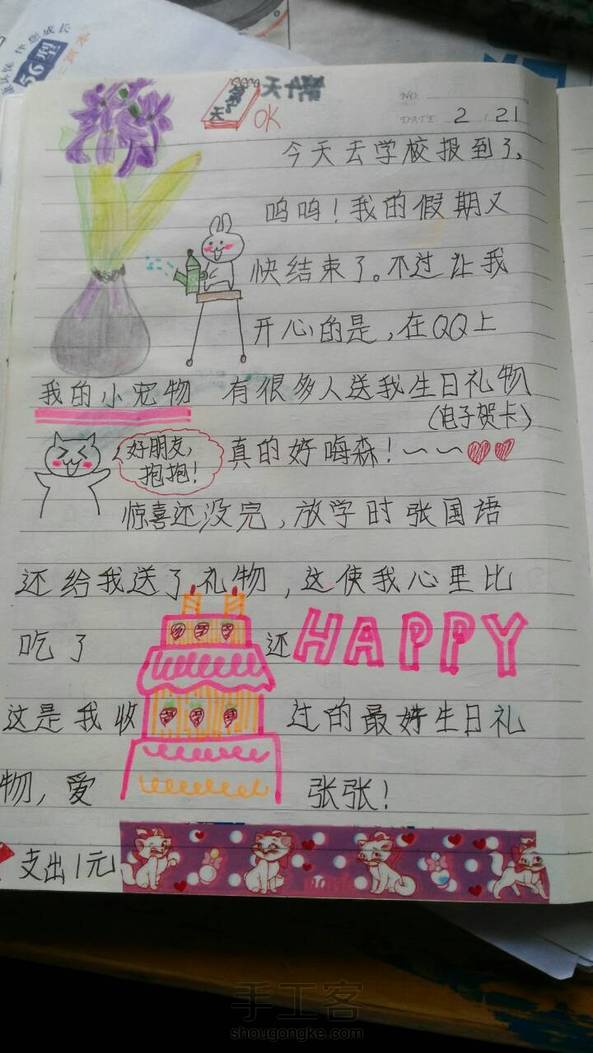 第天
OK
NO.
DATE 2 / 21
今天去学校报到了,
呜呜!我的假期又
快结束了。不过让我
开心的是,在QQ上
我的小宠物 有很多人送我生日礼物
(电子贺卡)
好朋友,
抱抱!
真的好嗨森!~~
惊喜还没完,放学时张国语
还给我送了礼物,这使我心里比
吃了 还HAPPY
这是我收 过的最好生日礼
物,爱 张张!
支出1元
手工客
shougongke.com